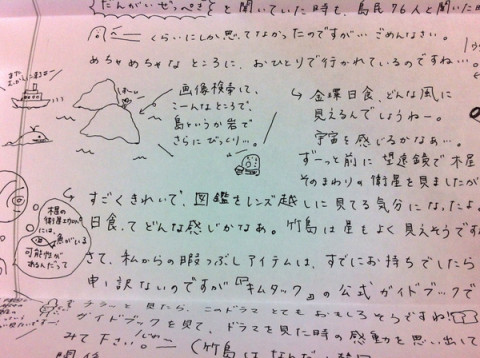 だんがいぜっぺき を聞いていた時も、島民76人と聞いた時
くらいにしか思ってなかったのですが…ごめんなさい。
めちゃめちゃなところに、おひとりで行かれているのですね…。
画像検索して、
こーんなところで、
島というか岩で
さらにびっくり…。
金環日食、どんな風に
見えるんでしょうねー。
宇宙を感じるかなぁ…。
ずーっと前に望遠鏡で木星
そのまわりの衛星を見ましたが
すごくきれいで、図鑑をレンズ越しに見てる気分になったよ。
日食ってどんな感じかなぁ。竹島は星もよく見えそうです
木星の
衛星エウロパ
には、
魚がいる
可能性が
あるんだって
さて、私からの暇つぶしアイテムは、すでにお持ちでしたら
申し訳ないのですが『キムタック』の公式ガイドブックで
チラーと見たら、このドラマとてもおもしろそうですね!
ガイドブックを見て、ドラマを見た時の感動を思い出して
みて下さい。